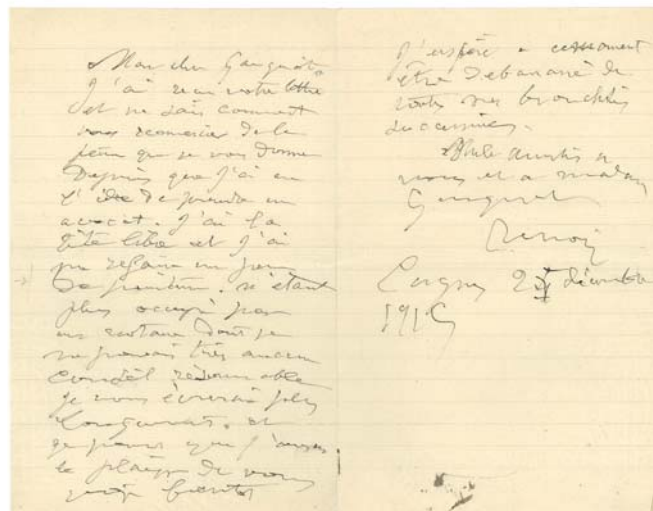 Mon cher Gangnat,
J'ai reçu votre lettre
et ne sais comment
vous remercier de la
peine que je vous donne
Depuis que j'ai eu
l'idée de prendre un
avocat. J'ai la
tête libre et j'ai
pu refaire un peu
de peinture. n'étant
plus occupé par
un notaire dont je
ne pouvais tirer aucun
conseil raisonnable
je vous écrirai plus
longuement. et
je pense que j'aurai
le plaisir de vous
voir bientôt
J'espère a ce moment
être débarrassé de
toutes mes bronchites
successives.
Mille amitiés a
vous et a madame
Gangnat
Renoir
Cagnes 2 décembre
191